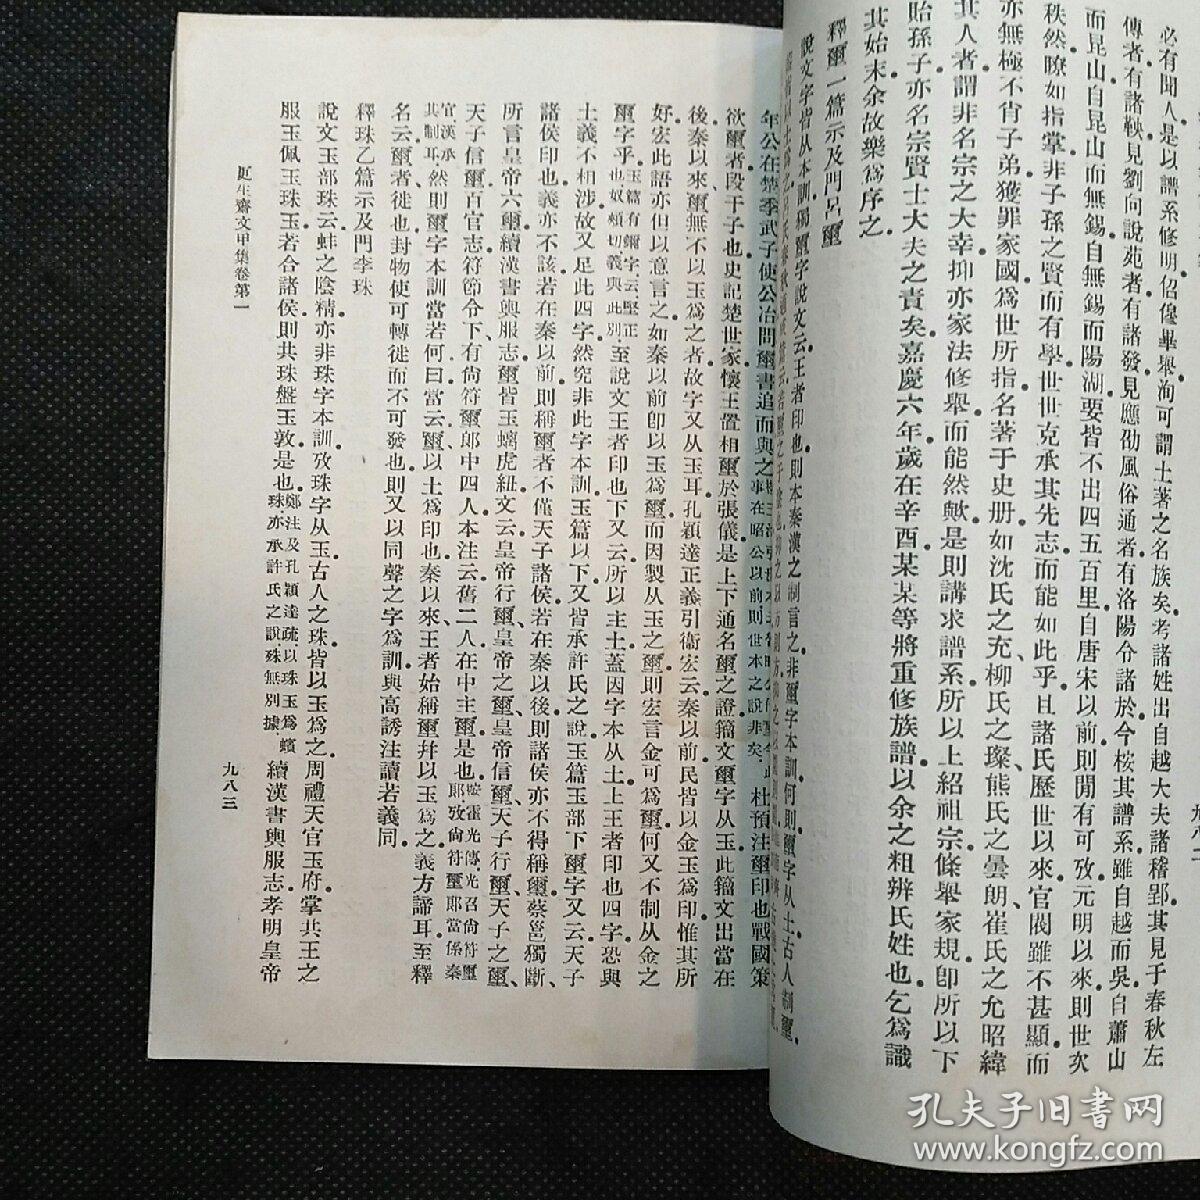 必有聞人是以譜系修明佋穆畢舉洵可謂土著之名族矣考諸姓出自越大夫諸稽郢其見于春秋左
傳者有諸鞅見劉向說苑者有諸發見應劭風俗通者有洛陽令諸於今桉其譜系雖自越而吳自蕭山
而昆山自昆山而無錫自無錫而陽湖要皆不出四五百里自唐宋以前則閒有可攷元明以來則世次
秩然瞭如指掌非子孫之賢而有學世世克承其先志而能如此乎且諸氏歷世以來官閥雖不甚顯而
亦無極不肖子弟獲罪家國爲世所指名著于史册如沈氏之充柳氏之璨熊氏之曇朗崔氏之允昭緯
其人者謂非名宗之大幸抑亦家法修舉而能然歟是則講求譜系所以上紹祖宗條舉家規卽所以下
貽孫子亦名宗賢士大夫之責矣嘉慶六年歲在辛酉某某等將重修族譜以余之粗辨氏姓也乞爲識
其始末余故樂爲序之
釋璽一篇示及門呂璽
說文字皆从本訓獨璽字說文云王者印也則本秦漢之制言之非璽字本訓何則璽字从土古人制璽
年公在楚季武子使公冶問璽書追而與之 事在昭公以前則世本之說非矣 杜預注璽印也戰國策
欲璽者段干子也史記楚世家懷王置相璽於張儀是上下通名璽之證籀文璽字从玉此籀文出當在
後秦以來璽無不以玉爲之者故字又从玉耳孔穎達正義引衞宏云秦以前民皆以金玉爲印惟其所
好宏此語亦但以意言之如秦以前卽以玉爲璽而因製从玉之璽則宏言金可爲璽何又不制从金之
璽字乎 玉篇有鑈字云堅正也奴頰切義與此別 至說文王者印也下又云所以主土蓋因字本从土上王者印也四字恐與
土義不相涉故又足此四字然究非此字本訓玉篇以下又皆承許氏之說玉篇玉部下璽字又云天子
諸侯印也義亦不該若在秦以前則稱璽者不僅天子諸侯若在秦以後則諸侯亦不得稱璽蔡邕獨斷
所言皇帝六璽續漢書輿服志璽皆玉螭虎紐文云皇帝行璽皇帝之璽皇帝信璽天子行璽天子之璽
天子信璽百官志符節令下有尙符璽郎中四人本注云舊二人在中主璽是也 桉霍光傳光召尙符璽郎攷尙符璽郎當係秦
官漢承其制耳 然則璽字本訓當若何曰當云璽以土爲印也秦以來王者始稱璽幷以玉爲之義方諦耳至釋
名云璽者徙也封物使可轉徙而不可發也則又以同聲之字爲訓與高誘注讀若義同
釋珠乙篇示及門李珠
說文玉部珠云蚌之陰精亦非珠字本訓攷珠字从玉古人之珠皆以玉爲之周禮天官玉府掌共王之
服玉佩玉珠玉若合諸侯則共珠盤玉敦是也 鄭注及孔穎達疏以珠玉爲蠙珠亦承許氏之說殊無別據 續漢書輿服志孝明皇帝
更生齋文甲集卷第一
九八三
孔夫子旧书网
www.kongfz.com